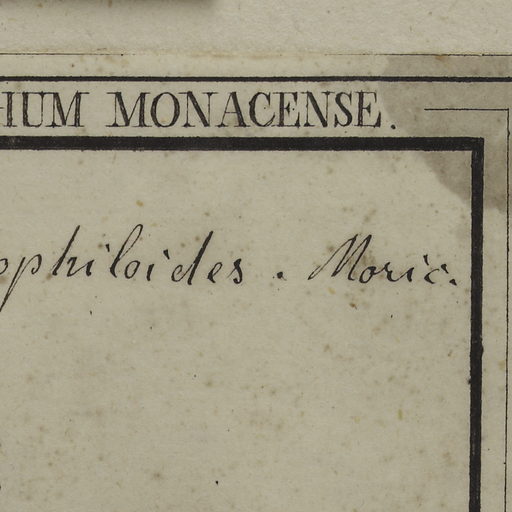 IUM MONACENSE.
ophiloides. Moric.